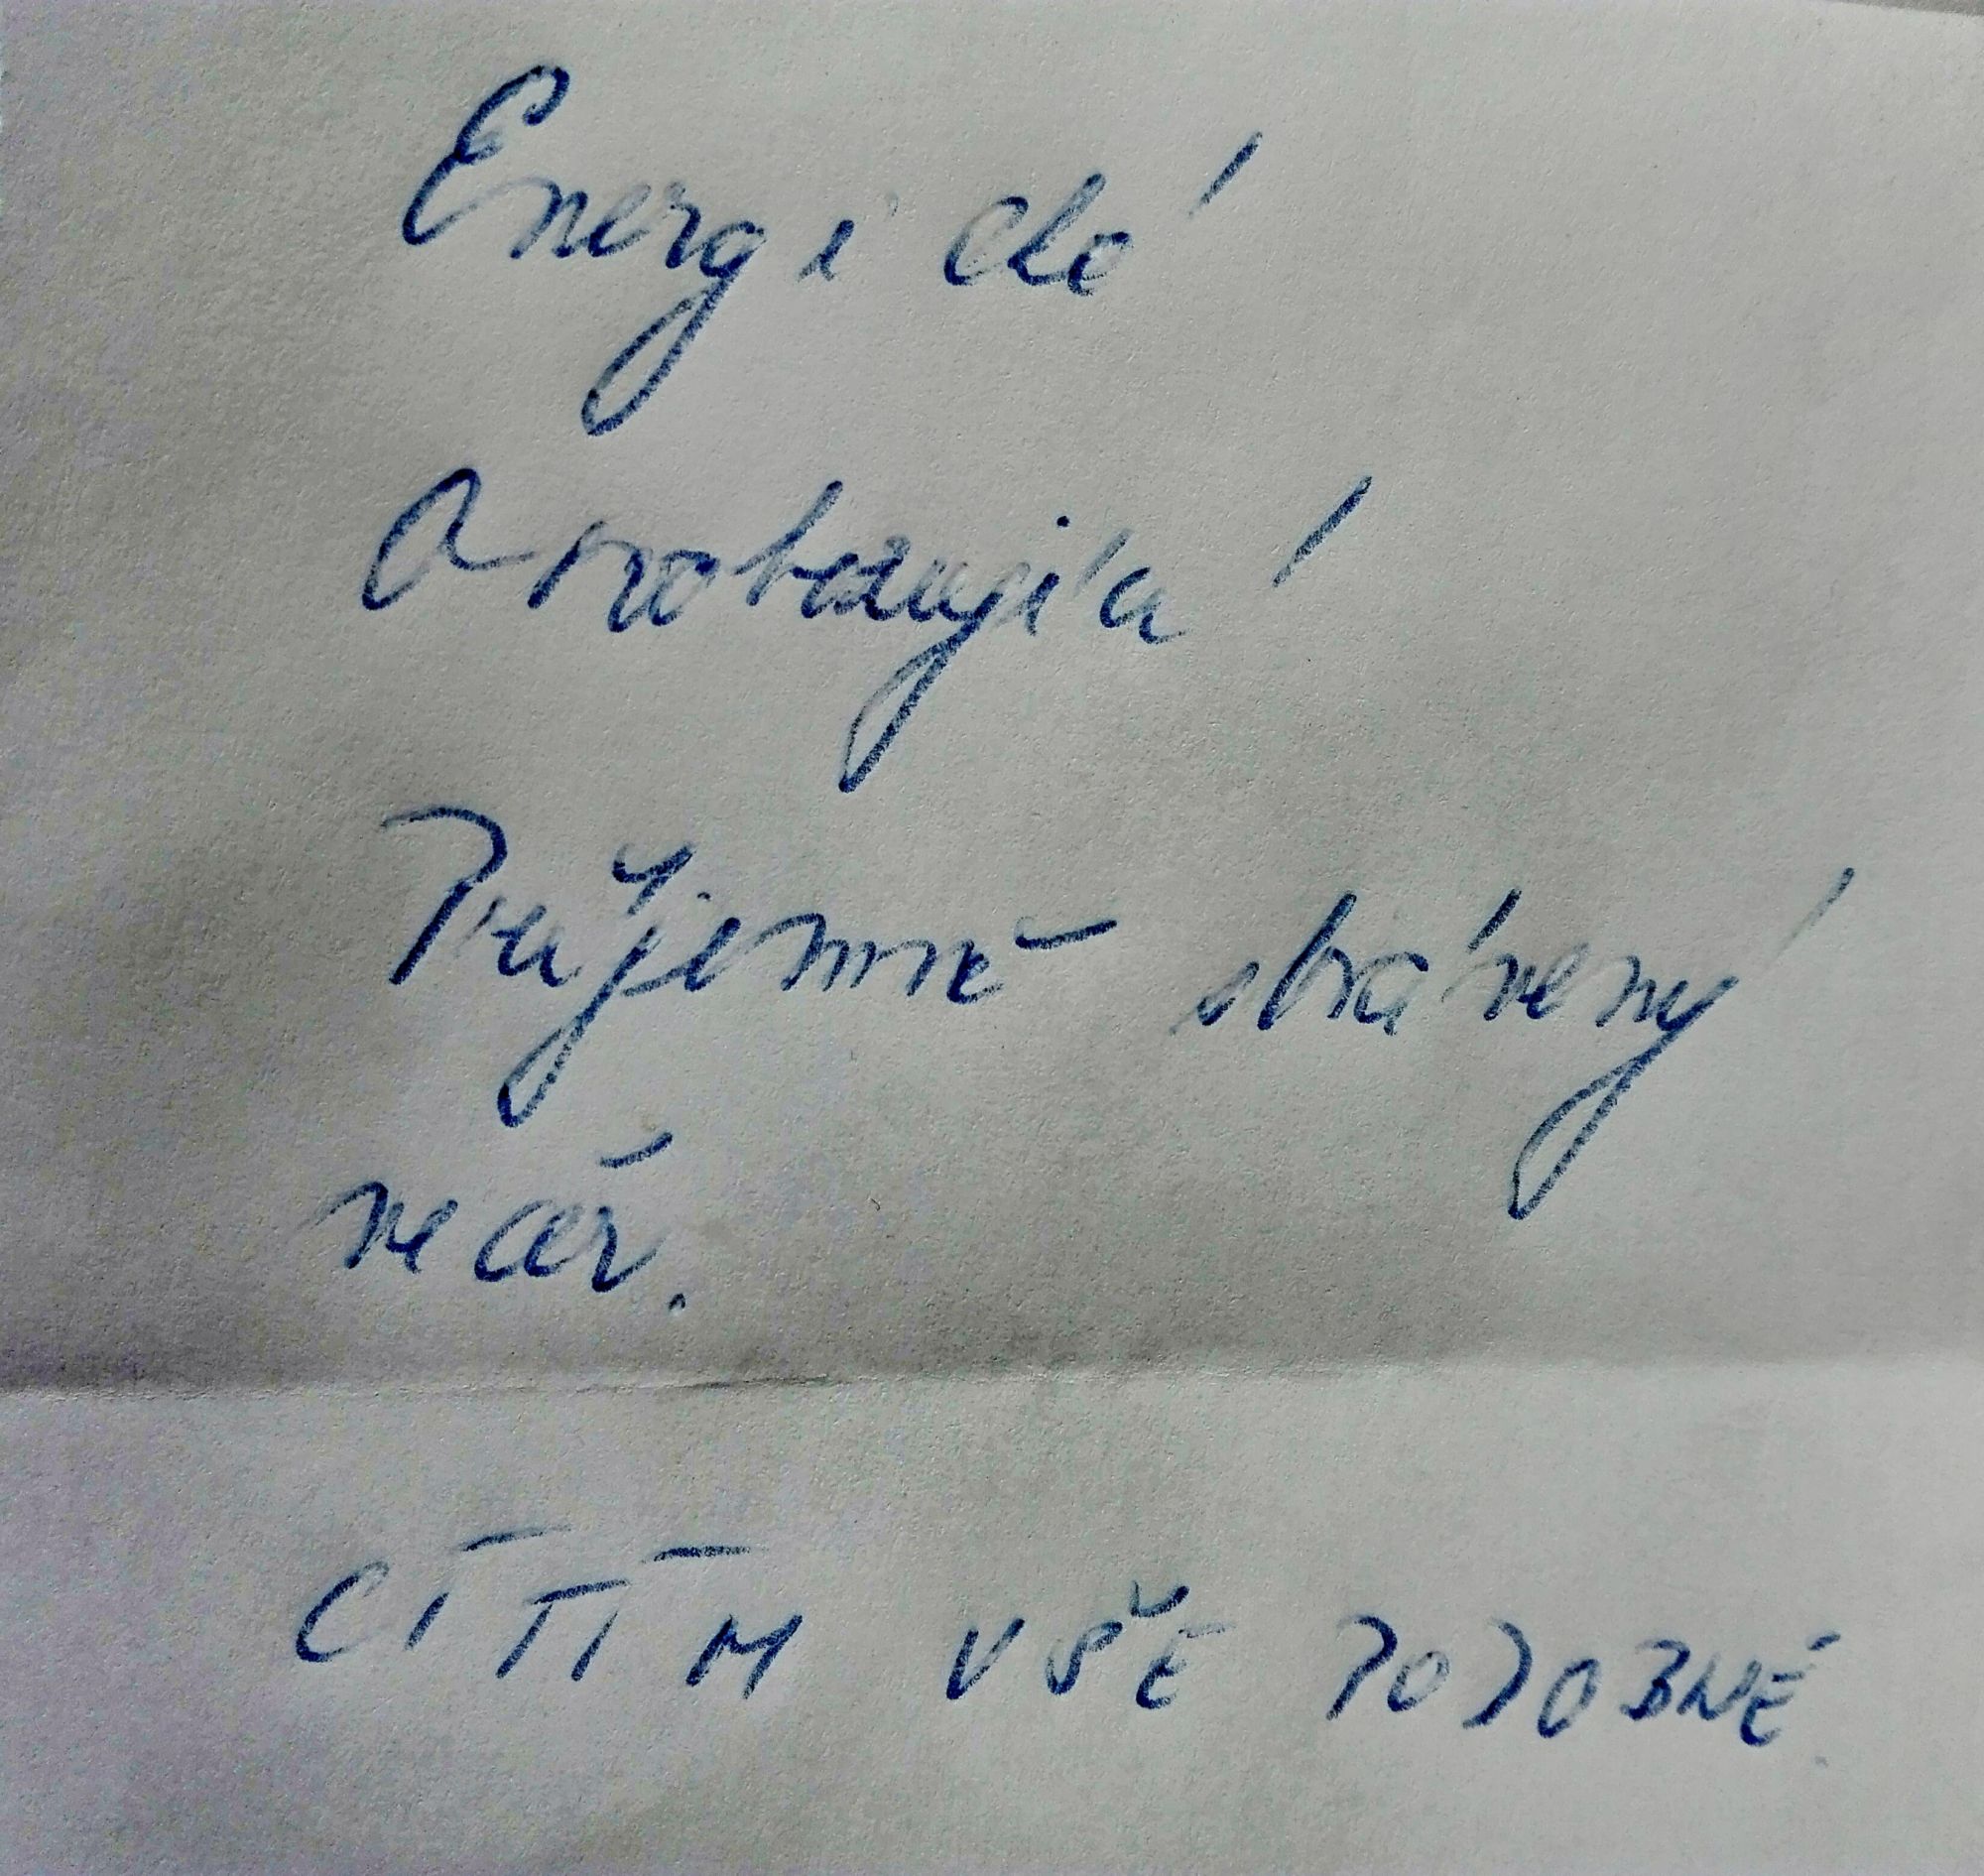 Energické!
Osvobozující!
Příjemně strávený
večer.
CÍTÍM VŠE PODOBNĚ.